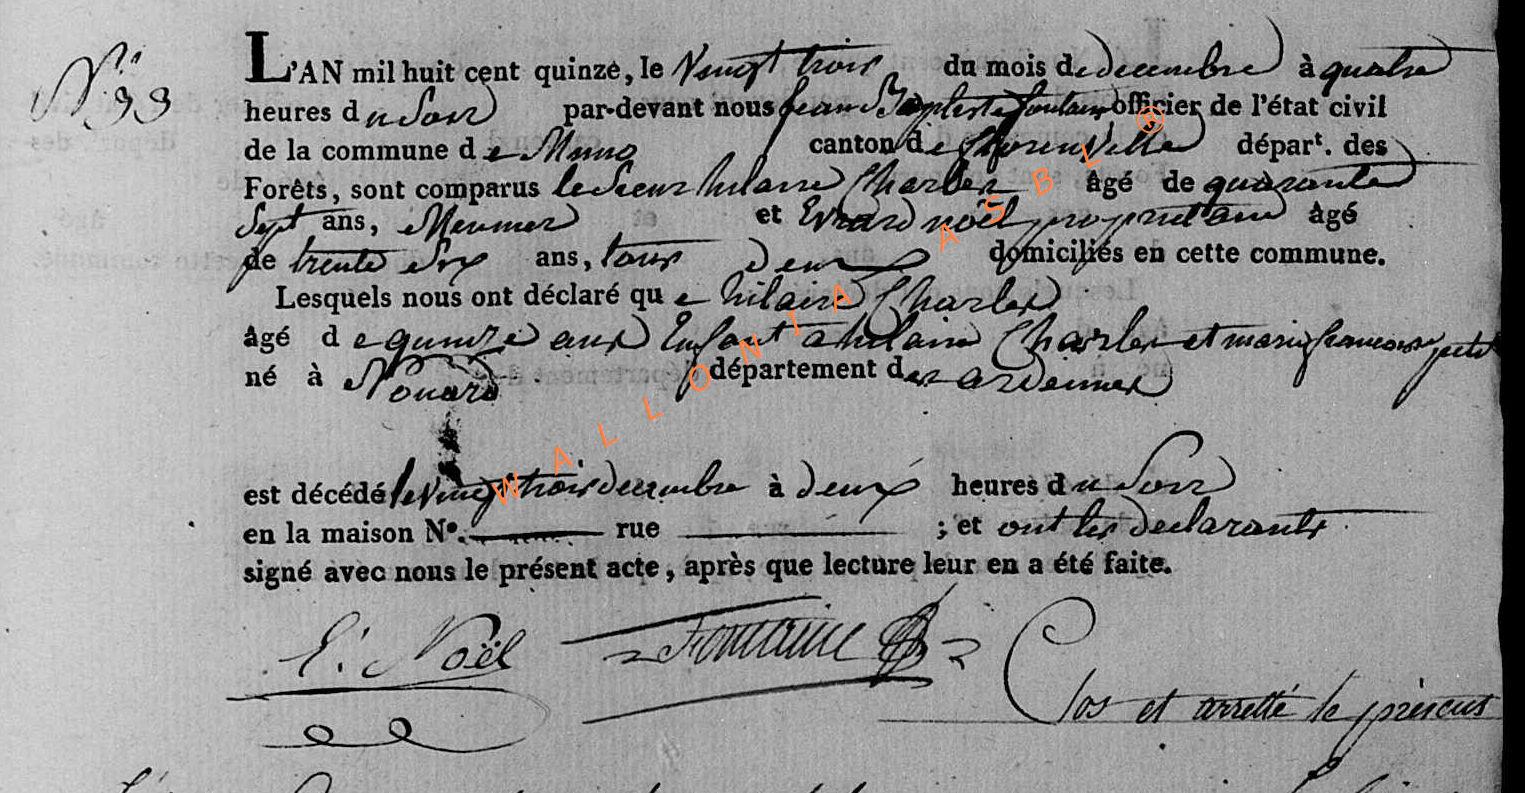 N° 33
L'AN mil huit cent quinze, le Vingt trois du mois de decembre à quatre
heures du Soir par-devant nous jean Baptiste fontaine officier de l'état civil
de la commune de Muno canton de florenville dépar.t des
Forêts, sont comparus le Sieur hilaire Charles âgé de quarante
Sept ans, Meunier et Evrard noël proprietaire âgé
de trente Six ans, tous deux domiciliés en cette commune.
Lesquels nous ont déclaré que hilaire Charles
âgé de quinze ans Enfant a hilaire Charles et marie francoise petit
né à Nouard département des ardennes
est décédé le Vingt trois decembre à deux heures du Soir
en la maison N°. rue ; et ont les declarants
signé avec nous le présent acte, après que lecture leur en a été faite.
E. Noël Fontaine
Clos et arretté le présent
WALLONIA ASBL ®